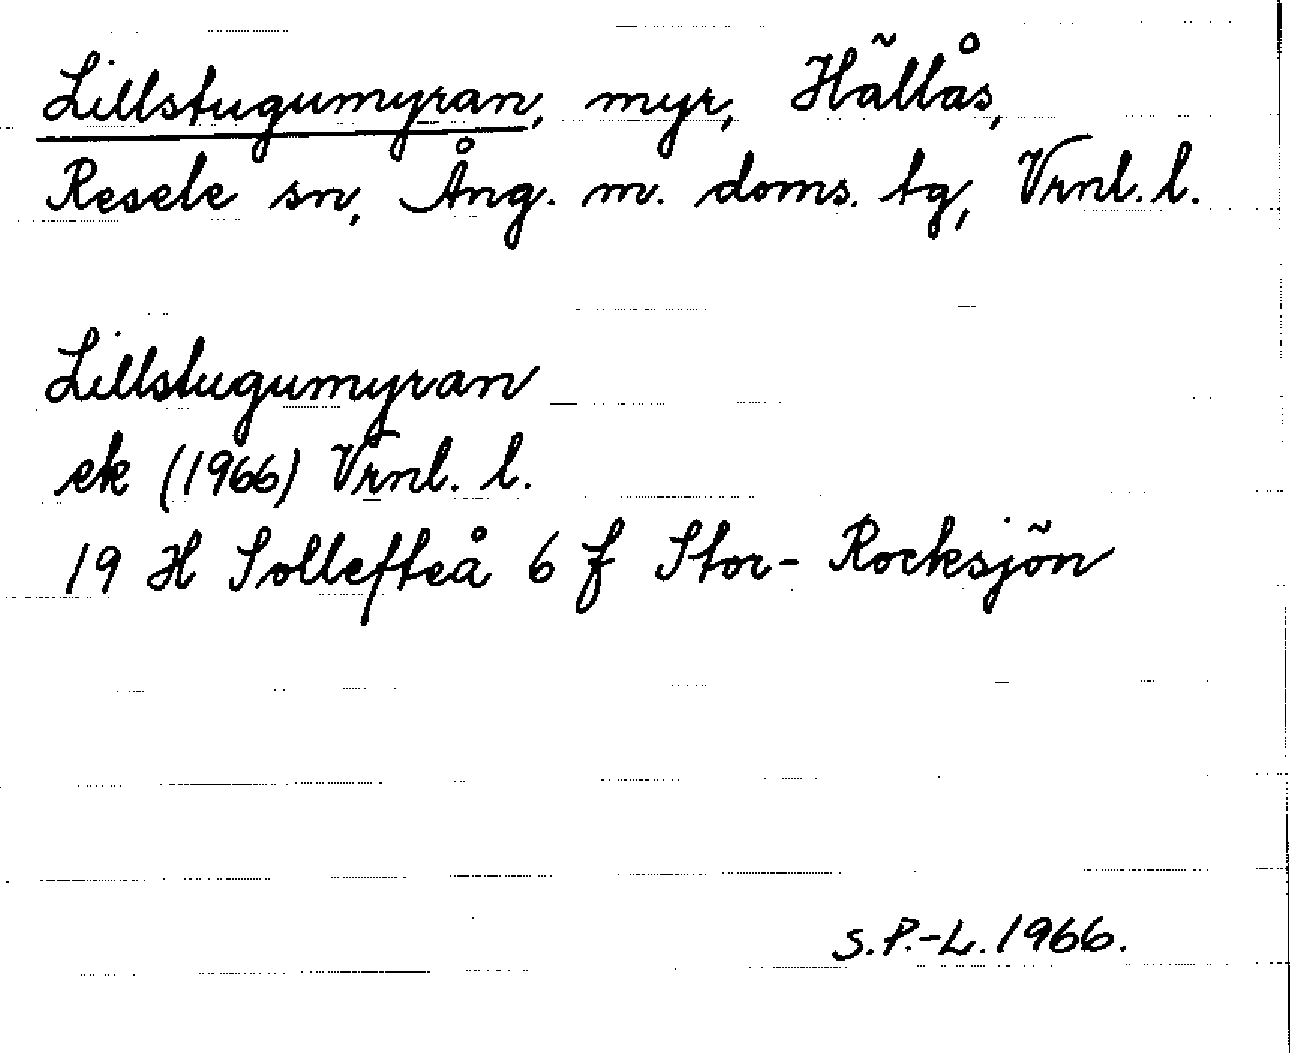 Lillstugumyran, myr, Hällås,
Resele sn, Ång. m. doms. tg, Vrnl. l.
Lillstugumyran
ek (1966) Vrnl. l.
19 H Sollefteå 6 f Stor-Rocksjön
S.P.-L. 1966.